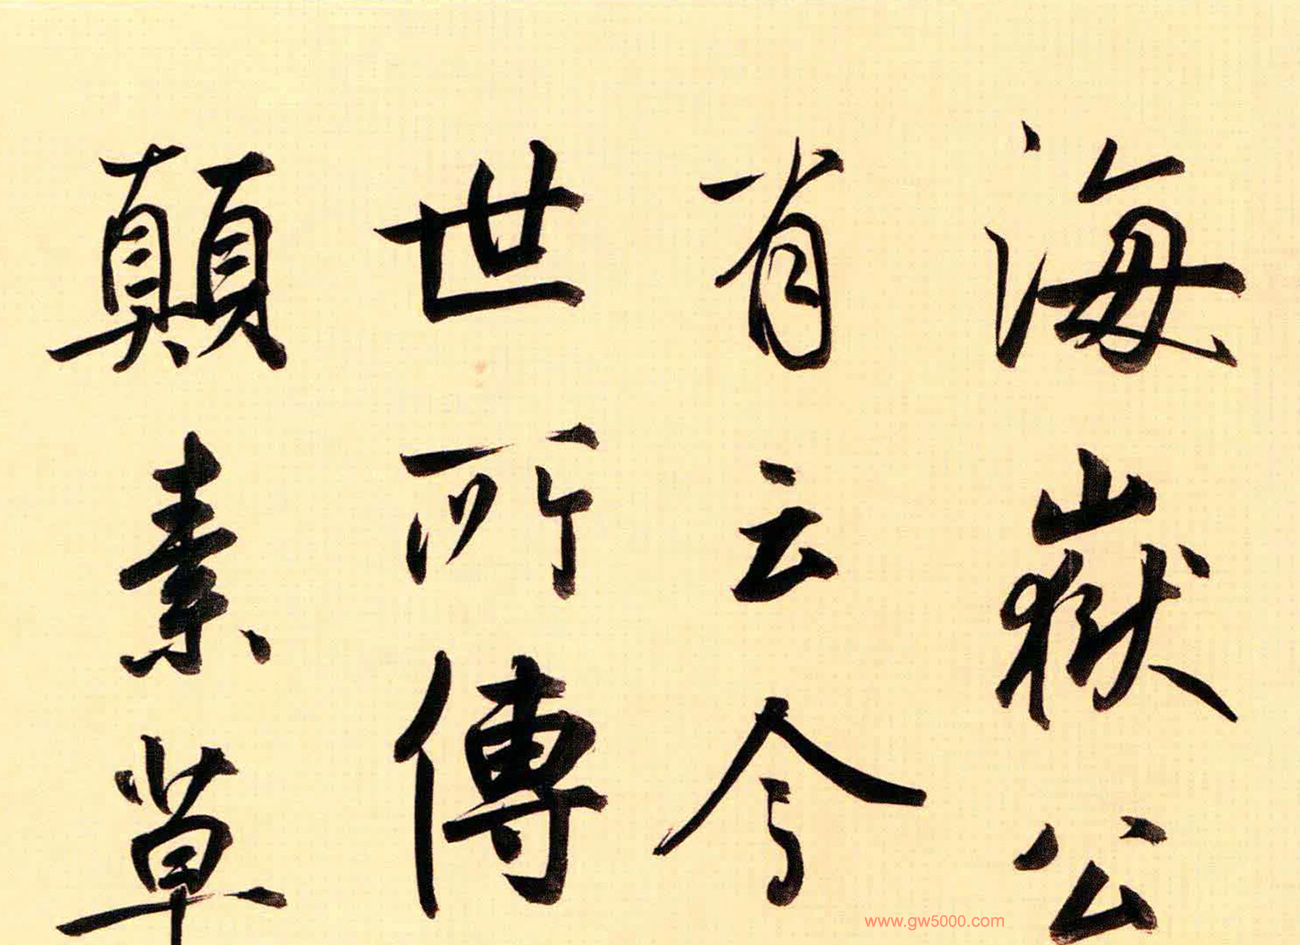 海嶽公
有云今
世所傳
顛素草
www.gw5000.com